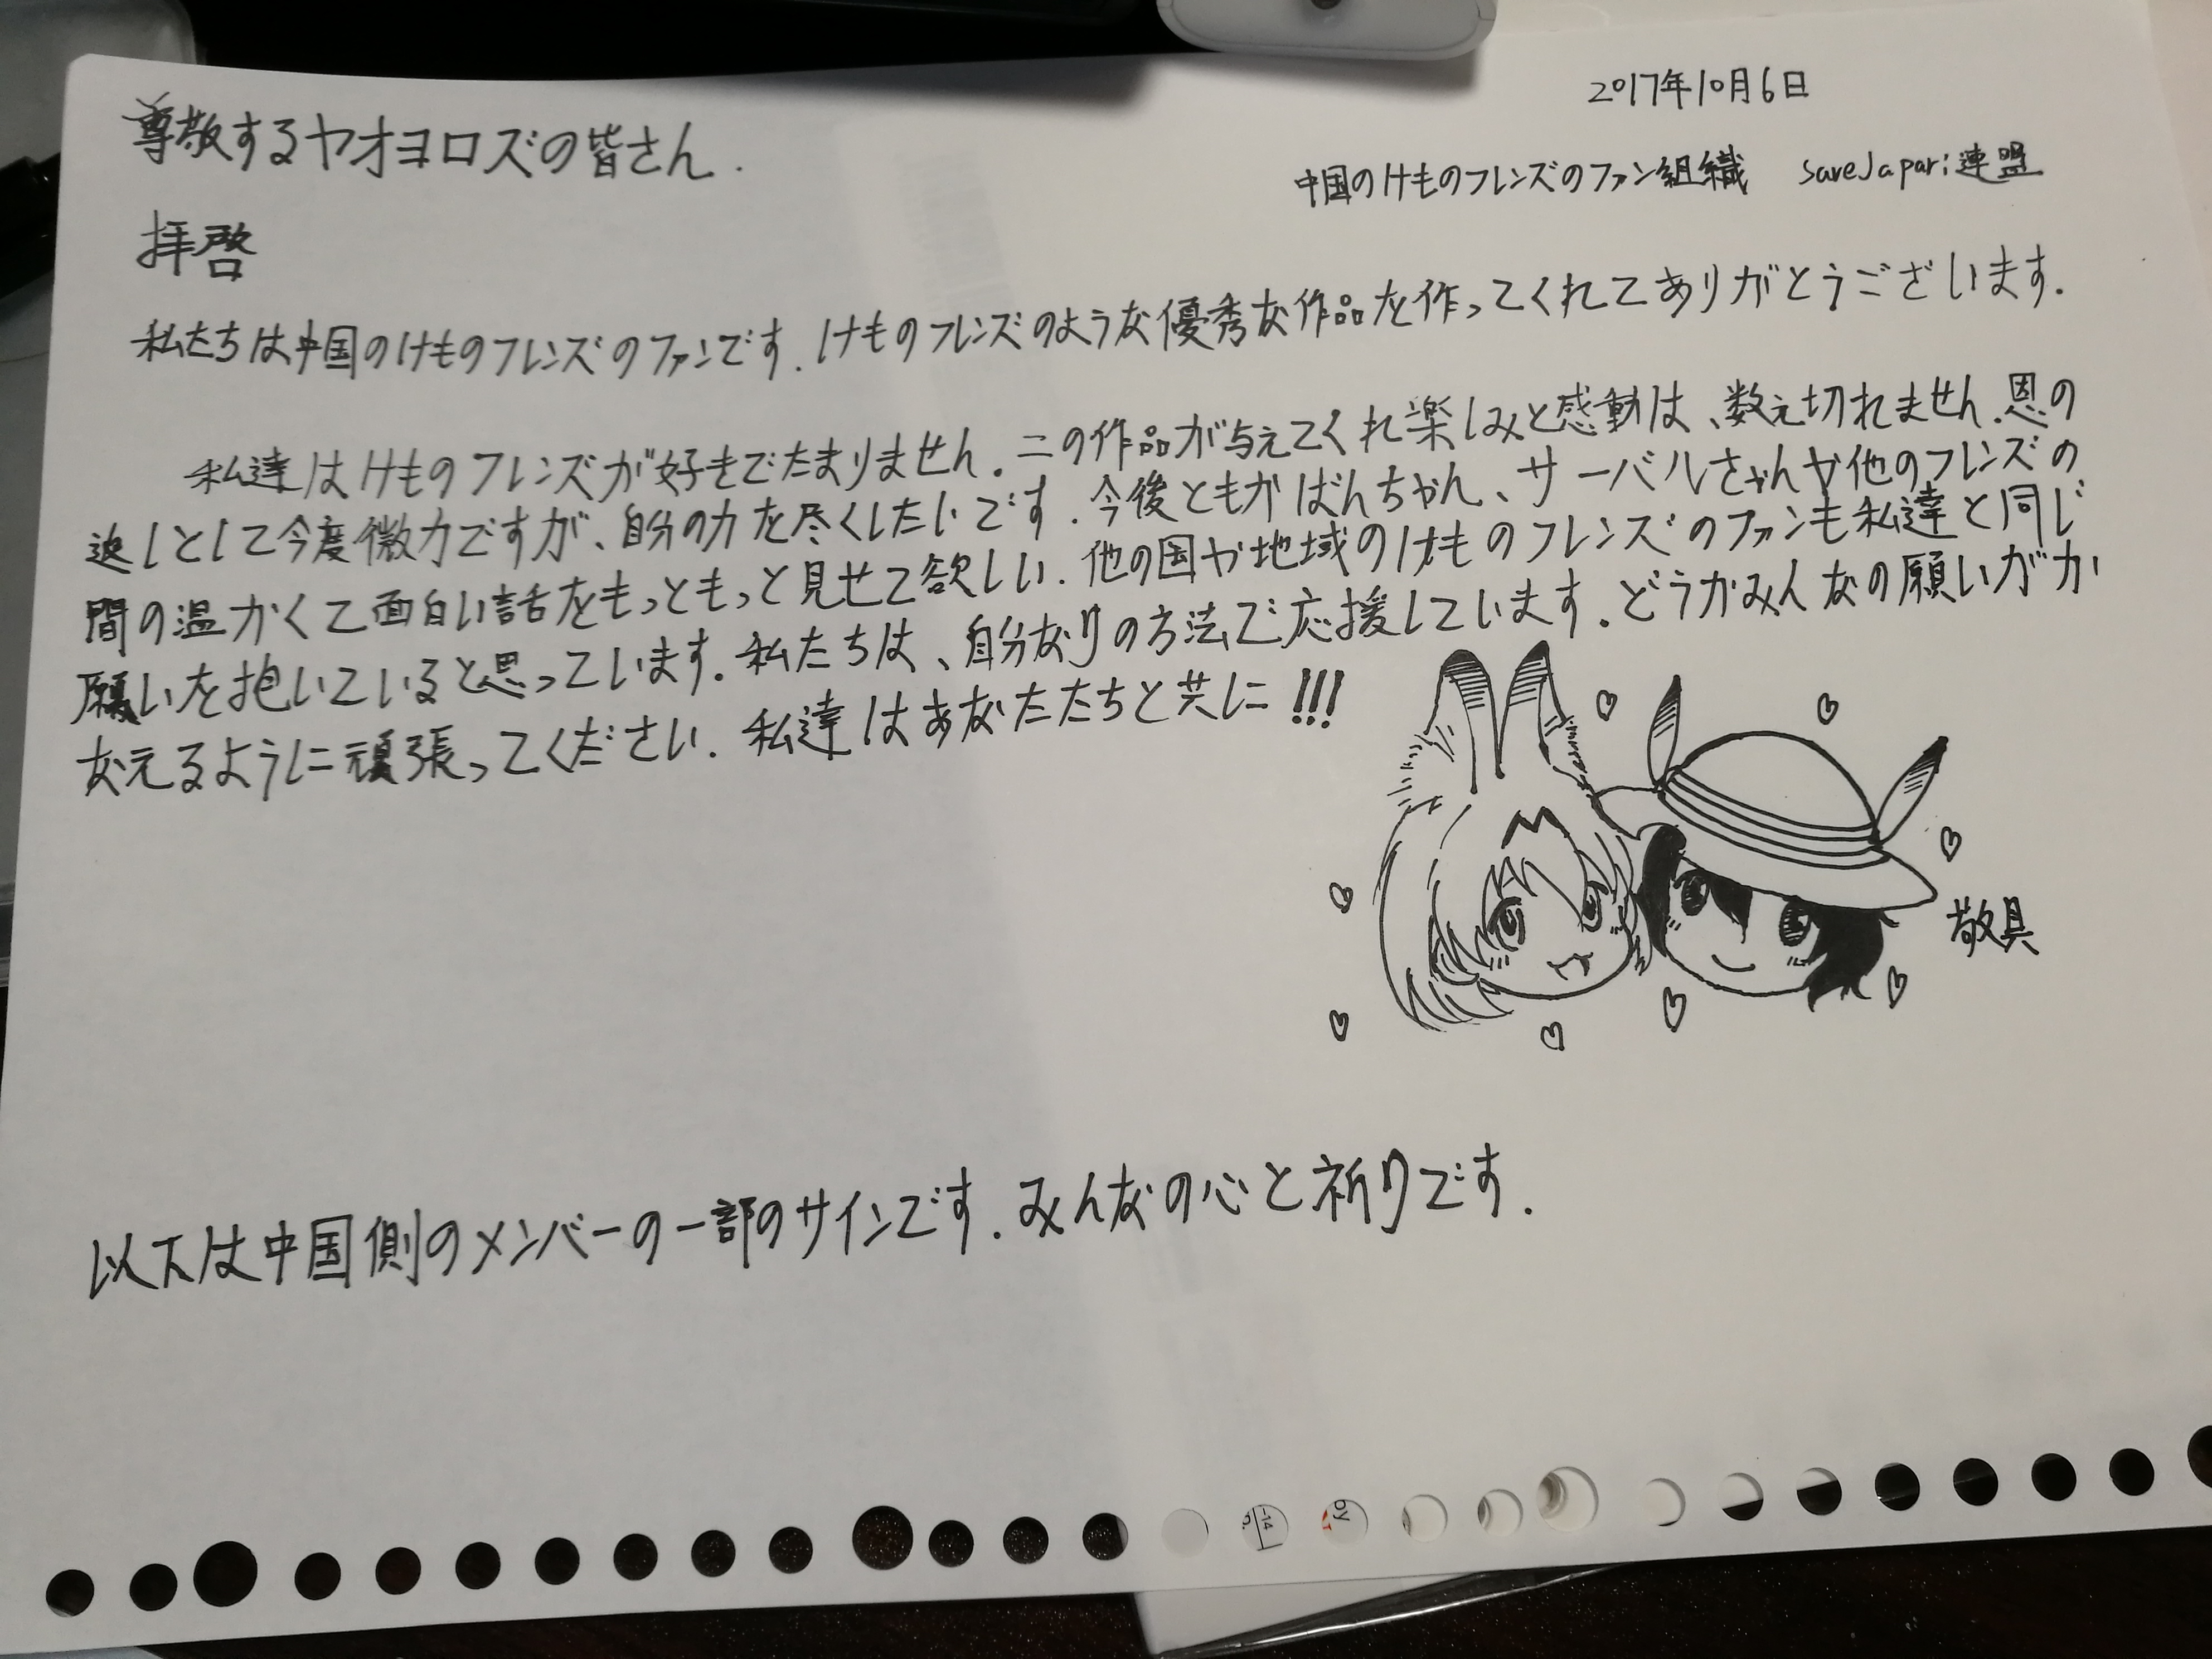 2017年10月6日
尊敬するヤオヨロズの皆さん.
中国のけものフレンズのファン組織 saveJapari連盟
拝啓
私たちは中国のけものフレンズのファンです.けものフレンズのような優秀な作品を作ってくれてありがとうございます.
私達はけものフレンズが好きでたまりません.この作品が与えてくれ楽しみと感動は、数え切れません.恩の
返しとして今度微力ですが、自分の力を尽くしたいです.今後ともかばんちゃん、サーバルさゃんや他のフレンズの
間の温かくて面白い話をもっともっと見せて欲しい.他の国や地域のけものフレンズのファンも私達と同じ
願いを抱いていると思っています.私たちは、自分なりの方法で応援しています.どうかみんなの願いがか
なえるように頑張ってください.私達はあなたたちと共に!!!
敬具
以下は中国側のメンバーの一部のサインです.みんなの心と祈りです.
-14
by